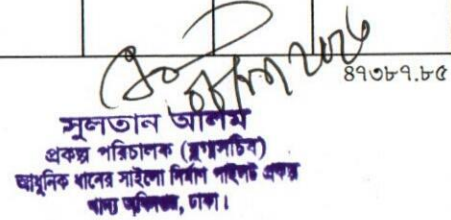 ৪৭৩৮৭.৮৫
সুলতান আলম
প্রকল্প পরিচালক (যুগ্মসচিব)
আধুনিক ধানের সাইলো নির্মাণ পাইলট প্রকল্প
খাদ্য অধিদপ্তর, ঢাকা।